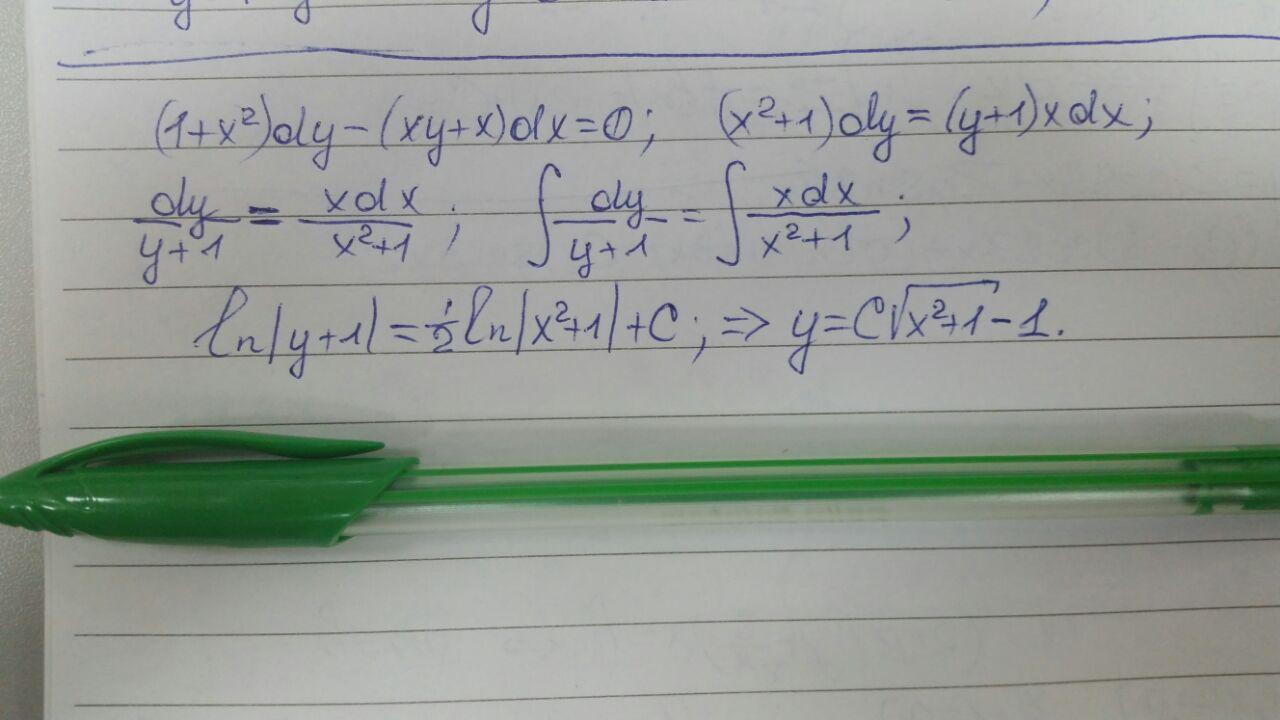 (1+x²)dy-(xy+x)dx=0; (x²+1)dy=(y+1)xdx;
dy/(y+1) = xdx/(x²+1); ∫dy/(y+1) = ∫xdx/(x²+1);
ln|y+1|=½ln|x²+1|+C; ⇒ y=C√(x²+1)-1.